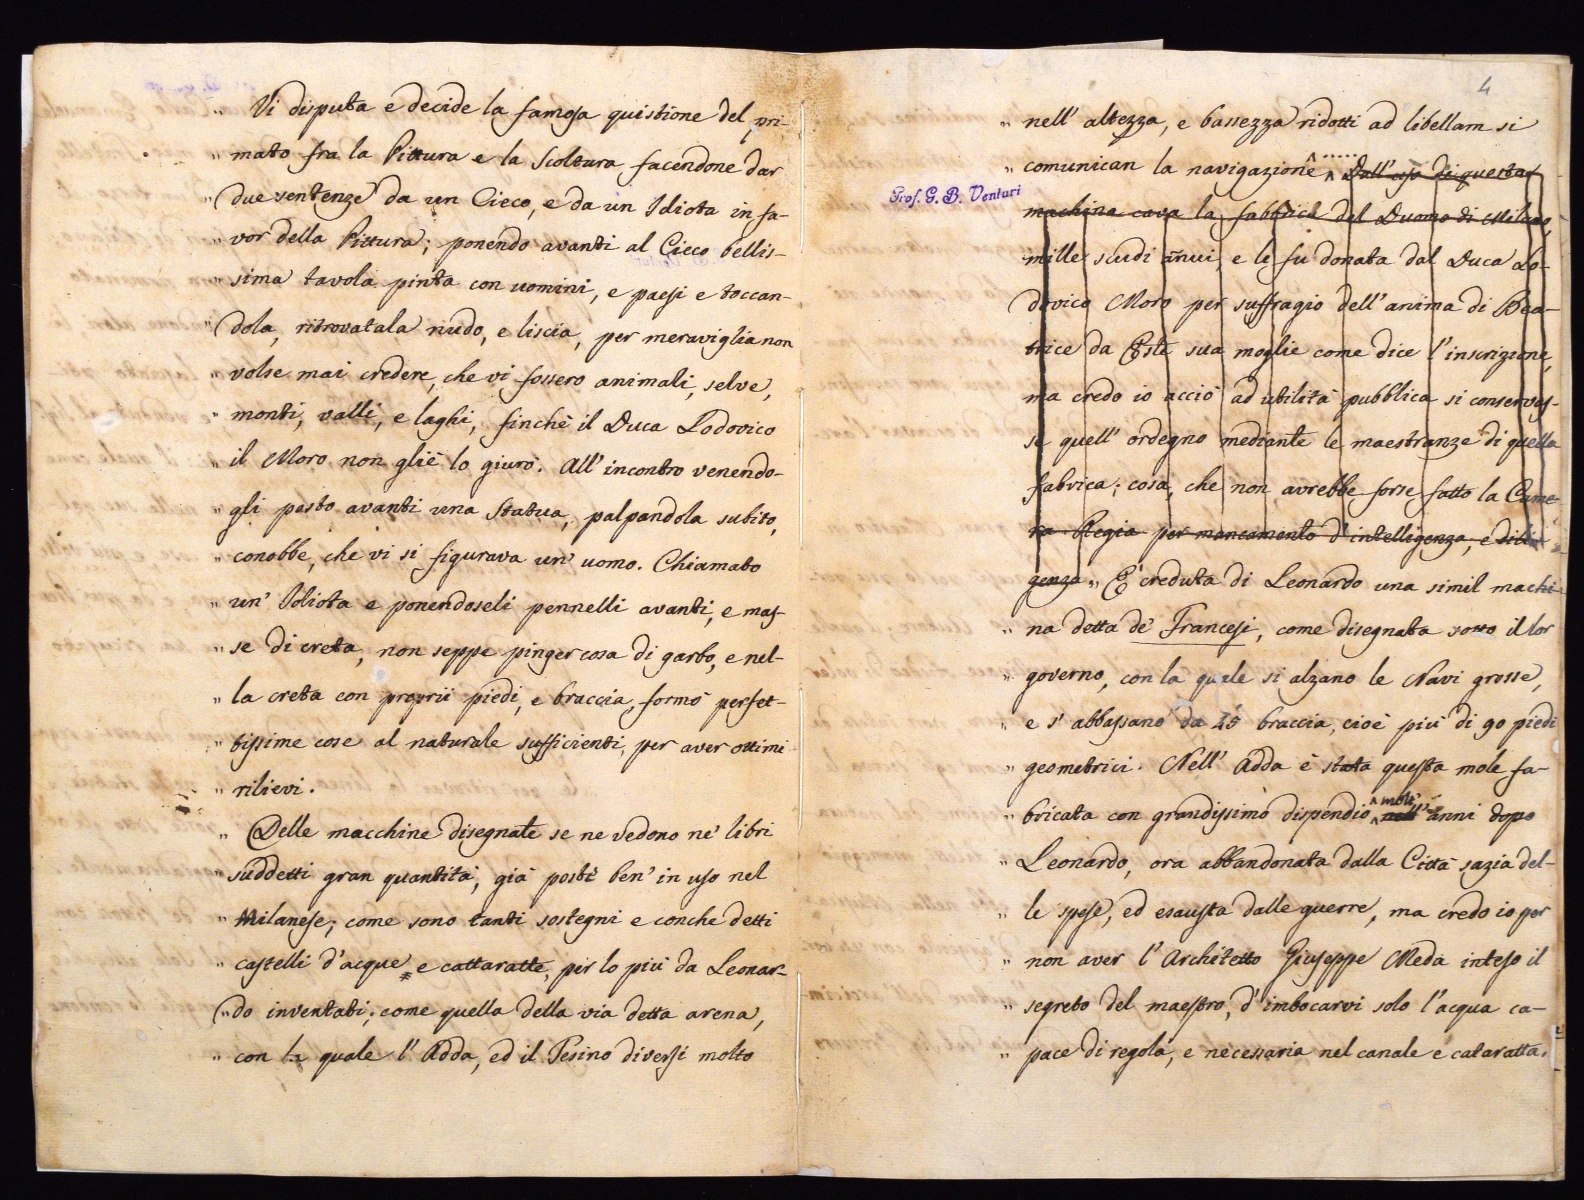 " Vi disputa e decide la famosa quistione del pri-
" mato fra la Pittura e la Scoltura facendone dar
" due sentenze da un Cieco, e da un Idiota in fa-
" vor della Pittura; ponendo avanti al Cieco bellis-
" sima tavola pinta con uomini, e paesi e toccan-
" dola, ritrovatala nudo, e liscia, per meraviglia non
" volse mai credere, che vi fossero animali, selve,
" monti, valli, e laghi, finchè il Duca Lodovico
" il Moro non gliè lo giurò. All' incontro venendo-
" gli posto avanti una Statua, palpandola subito,
" conobbe, che vi si figurava un' uomo. Chiamato
" un' Idiota e ponendoseli pennelli avanti, e mas-
" se di creta, non seppe pinger cosa di garbo, e nel-
" la creta con proprii piedi, e braccia, formò perfet-
" tissime cose al naturale sufficienti, per aver ottimi
" rilievi.
" Delle macchine disegnate se ne vedono ne' libri
" suddetti gran quantità, già posti ben' in uso nel
" Milanese; come sono tanti sostegni e conche detti
" castelli d'acque e cattaratte, per lo più da Leonar-
" do inventati; come quella della via detta arena,
" con la quale l' Adda, ed il Tesino diversi molto
4
" nell' altezza, e bassezza ridotti ad libellam si
" comunican la navigazione ...... Dall' uso di questa
Prof. G. B. Venturi
machina cava la fabbrica del Duomo di Milano,
mille scudi añnui, e le fu donata dal Duca Lo-
dovico Moro per suffragio dell' anima di Bea-
trice da Este sua moglie come dice l' inscrizione,
ma credo io acciò ad utilità pubblica si conservas-
se quell' ordegno mediante le maestranze di quella
fabrica; cosa, che non avrebbe forse fatto la Came-
ra Regia per mancamento d' intelligenza, e dili-
genza " E' creduta di Leonardo una simil machi-
" na detta de' Francesi, come disegnata sotto il lor
" governo, con la quale si alzano le Navi grosse,
" e s' abbassano da 45 braccia, cioè più di 90 piedi
" geometrici. Nell' Adda è stata questa mole fa-
" bricata con grandissimo dispendio molt' anni dopo
" Leonardo, ora abbandonata dalla Città sazia del-
" le spese, ed esausta dalle guerre, ma credo io per
" non aver l' Architetto Giuseppe Meda inteso il
" segreto del maestro, d' imbocarvi solo l' acqua ca-
" pace di regola, e necessaria nel canale e cataratta.